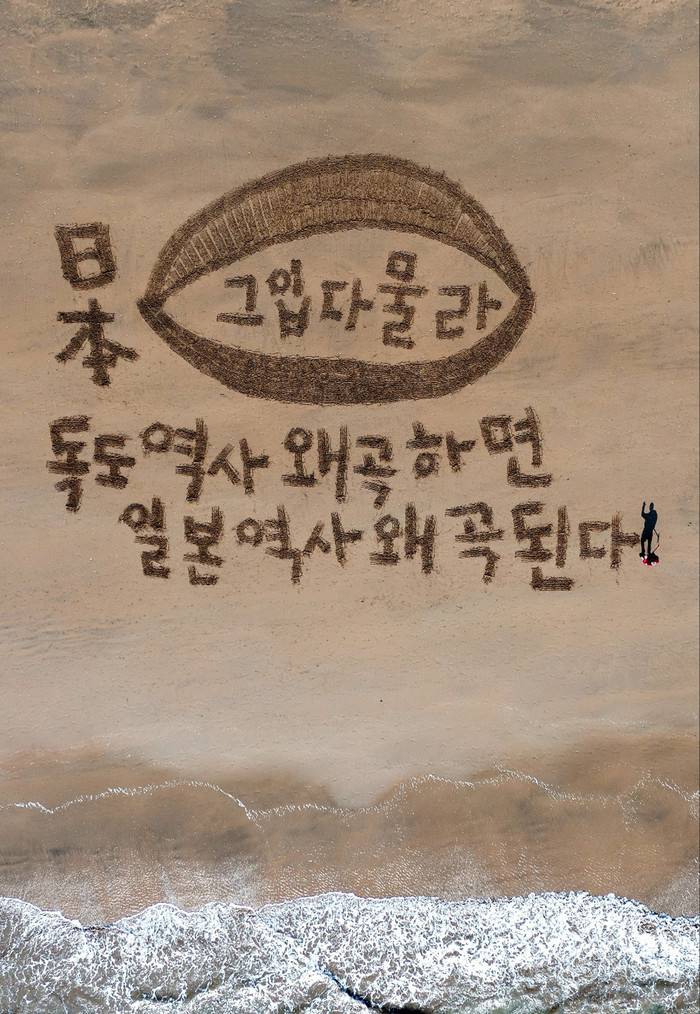 日本
그 입 다물라
독도 역사 왜곡하면
일본 역사 왜곡된다